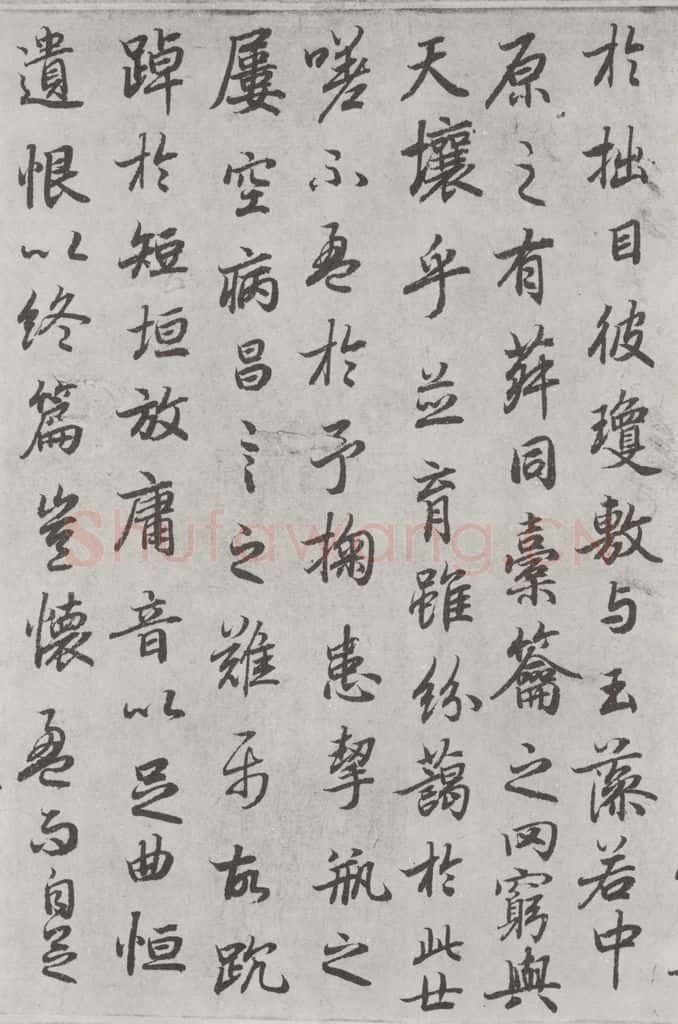 於拙目彼瓊敷与玉藻若中
原之有菽同橐籥之罔窮與
天壤乎並育雖紛藹於此世
嗟不盈於予掬患挈瓶之
屢空病昌言之難屬故踸
踔於短垣放庸音以足曲恒
遺恨以終篇豈懷盈而自足
Shufawang.CN